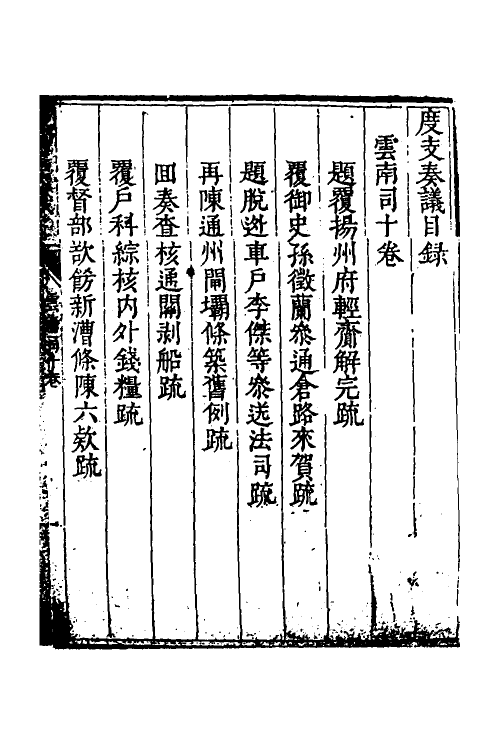 度支奏議目録
雲南司十卷
題覆揚州府輕齎解完疏
覆御史孫徵蘭叅通倉路來賀疏
題脫逃車戶李傑等叅送法司疏
再陳通州閘壩條築舊例疏
回奏查核通關剥船疏
覆戶科綜核内外錢糧疏
覆督部欲飭新漕條陳六欵疏